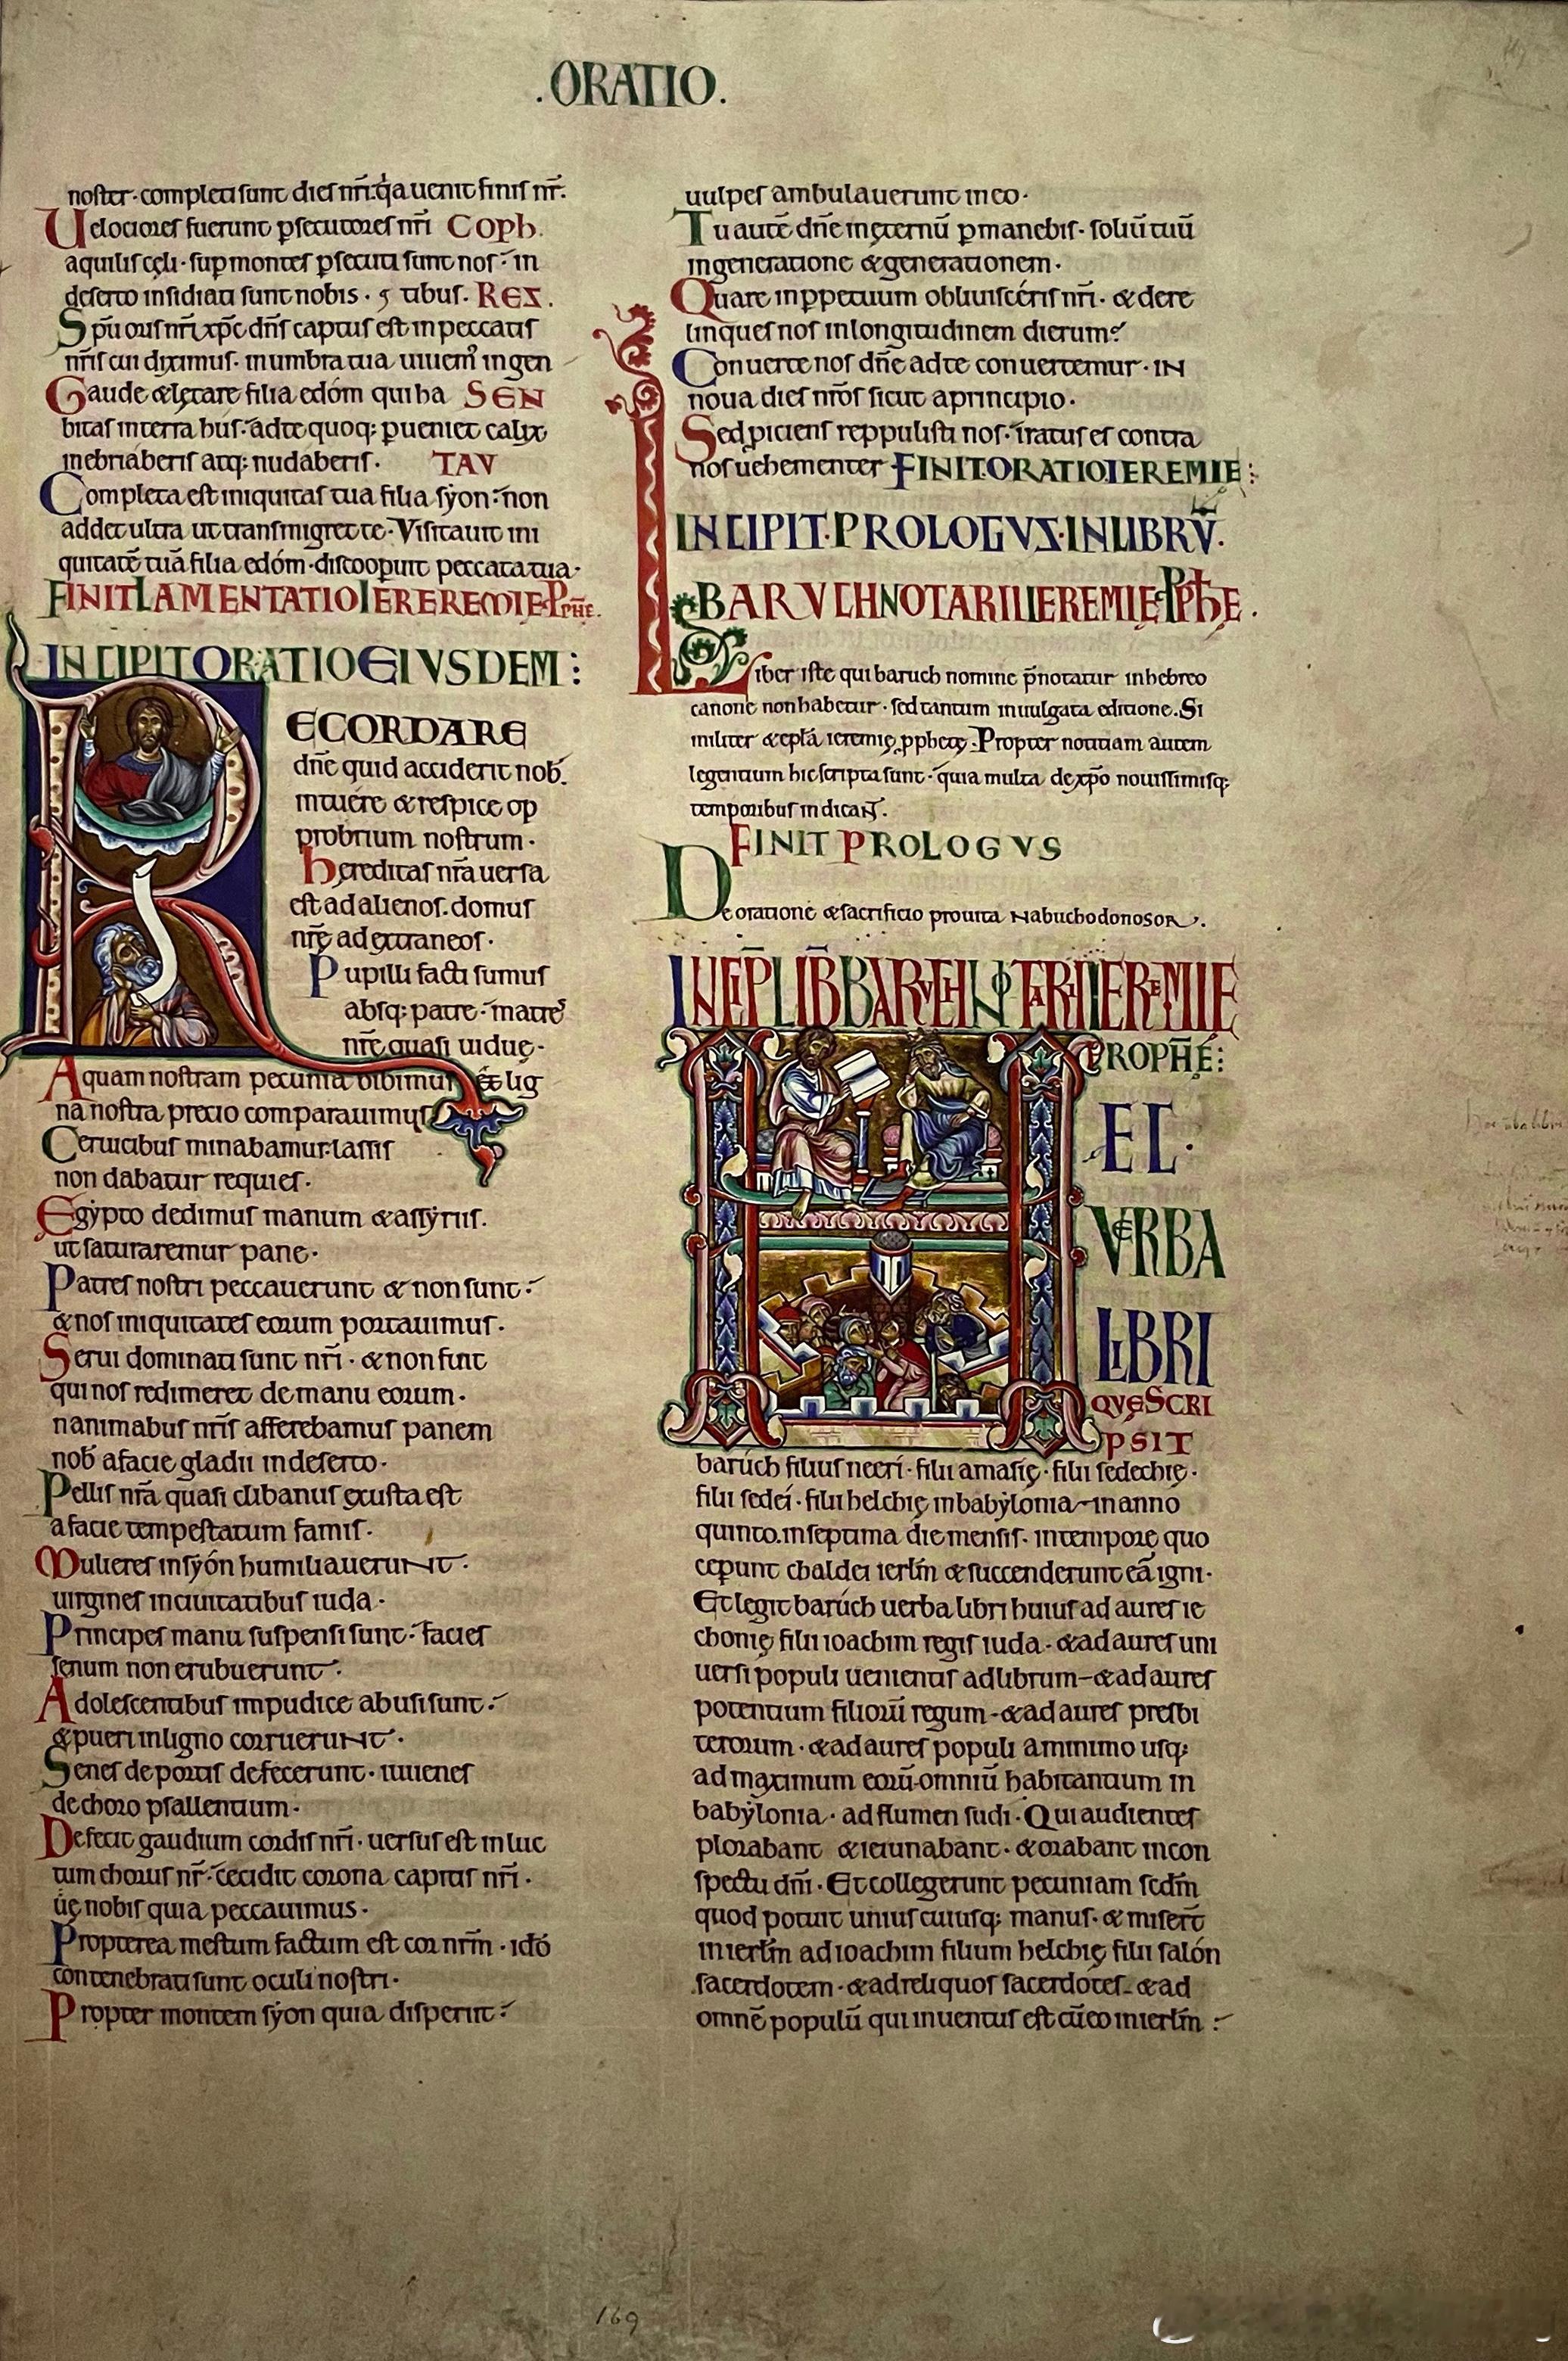 .ORATIO.
noster· completi sunt dies nr̄i· q̇a uenit finis nr̄.
Uelociores fuerunt ꝑsecutores nr̄i Coph.
aquilis cęli· sup montes ꝑsecuti sunt nos· in
deserto insidiati sunt nobis. RES.
Sp̄u oris nr̄i xp̄c dn̄s captus est in peccatis
nr̄is cui diximus· in umbra tua uiuemꝰ in gen
Gaude & lętare filia edóm qui ha SEN
bitas in terra hus· ad te quoq: ꝑueniet calix
inebriaberis atq: nudaberis· TAV
Completa est iniquitas tua filia sẏon· non
addet ultra ut transmigret te· Visitauit ini
quitatē tuā filia edóm· discooꝑuit peccata tua·
FINIT LAMENTATIO IEREREMIE PPHE.
INCIPIT ORATIO EIVSDEM:
RECORDARE
dn̄e quid acciderit nob̄.
intuére & respice op
probrium nostrum·
hereditas nr̄a uersa
est ad alienos. domus
nr̄ę ad extraneos·
Pupilli facti sumus
absq: patre· matreſ
nr̄ę quasi uiduę·
Aquam nostram pecunia bibimus & lig
na nostra precio comparauimus
Ceruicibus minabamur· lassis
non dabatur requies·
Egẏpto dedimus manum & assẏriis.
ut saturaremur pane·
Patres nostri peccauerunt & non sunt·
& nos iniquitates eorum portauimus·
Serui dominati sunt nr̄i· & non fuit
qui nos redimeret de manu eorum·
nanimabus nr̄is afferebamus panem
nob̄ a facie gladii in deserto·
Pellis nr̄a quasi clibanus exusta est
a facie tempestatum famis·
Mulieres in sẏón humiliauerunt·
uirgines in ciuitatibus iuda·
Principes manu suspensi sunt· facies
senum non erubuerunt·
Adolescentibus impudice abusi sunt·
& pueri in ligno corruerunt·
Senes de portis defecerunt· iuuenes
de choro psallentium·
Defecit gaudium cordis nr̄i· uersus est in luc
tum chorus nr̄· cecidit corona capitis nr̄i·
uę nobis quia peccauimus·
Propterea mestum factum est cor nr̄m· idō
contenebrati sunt oculi nostri·
Propter montem sẏon quia disperiit·
uulpes ambulauerunt in eo·
Tu autē dn̄e in ęternū ꝑmanebis· soliū tuū
in generatione & generationem·
Quare in ꝑpetuum obliuiscéris nr̄i· & dere
linques nos in longitudinem dierum?
Conuerte nos dn̄e ad te conuertemur· IN
noua dies nr̄os sicut a principio·
Sed piciens reppulisti nos· iratus es contra
nos uehementer FINIT. ORATIO. IEREMIE:
INCIPIT· PROLOGVS· IN LIBRV̄·
BARVCH NOTARII IEREMIĘ PPhE.
Liber iste qui baruch nomine p̄notatur in hebreo
canone non habetur· sed tantum in uulgata editione. Si
militer & epl̄a ieremię ꝓphetę. Propter notitiam autem
legentium hic scripta sunt· quia multa de xp̄o nouissimisq:
temporibus indicant̄.
FINIT PROLOGVS
De oratione & sacrificio pro uita Nabuchodonosor.
INCIP̄ LIB̄ BARVCH NOTARII IEREMIE
PROPHE̅:
ET·
VERBA
LIBRI
QVĘ SCRI
PSIT
barúch filius neerí· filii amasię· filii sedechię·
filii sedeí· filii helchię in babẏlonia in anno
quinto. in septima die mensis· in tempore quo
ceperunt chaldei ierlm̄ & succenderunt eā igni·
Et legit barúch uerba libri huius ad aures ie
chonię filii ioachim regis iuda· & ad aures uni
uersi populi uenientis ad librum & ad aures
potentium filiorū regum & ad aures presbi
terorum· & ad aures populi a minimo usq:
ad maximum eorū omniū habitantium in
babẏlonia· ad flumen sudi· Qui audientes
plorabant & ieiunabant· & orabant in con
spectu dn̄i· Et collegerunt pecuniam scdm̄
quod potuit uniuscuiusq: manus· & misert̄
in ierlm̄ ad ioachim filium helchię filii salón
sacerdotem· & ad reliquos sacerdotes & ad
omnē populū qui inuentus est cū eo in ierlm̄
169